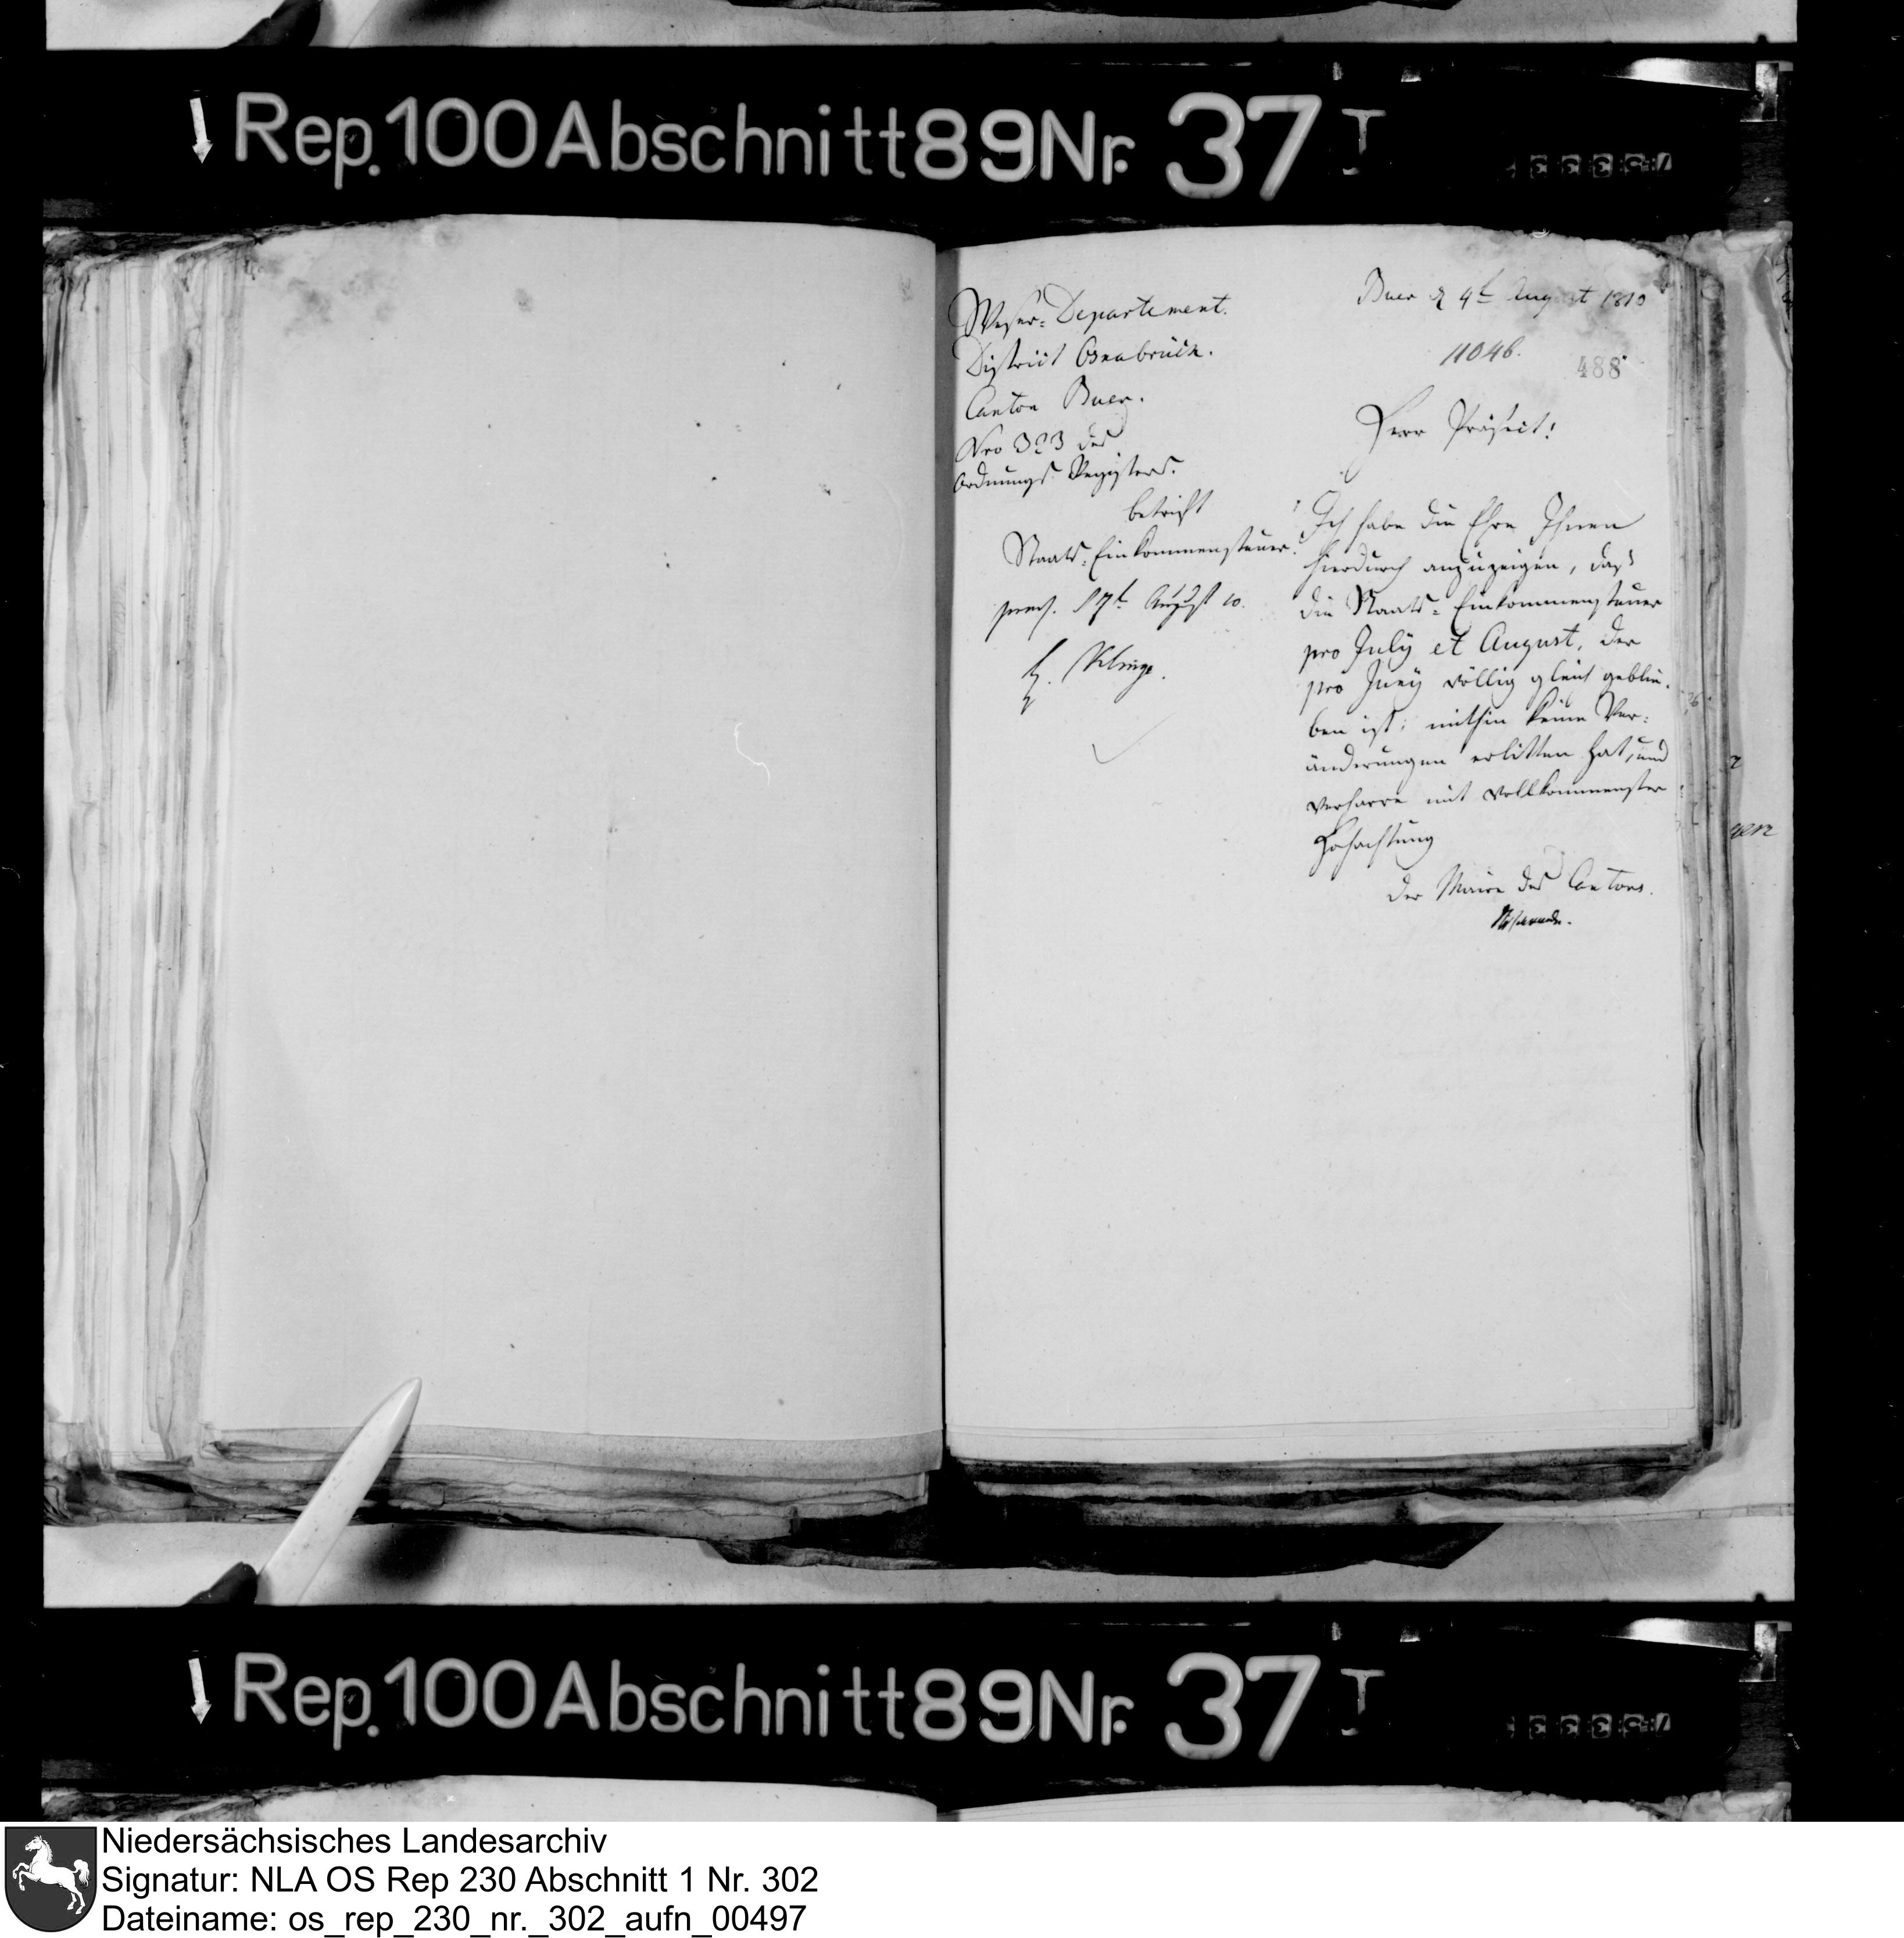 Rep. 100 Abschnitt 89 Nr. 37 I
Weser-Departement.
District Osnabrück.
Canton Buer.
Nro 323 des
Ordnungs Registers.
betrifft
Staats-Einkommensteuer.
praes. 17t August 10.
Klinge.
Buer d 9t August 1810
11046.
488
Herr Präfect!
Ich habe die Ehre Ihnen
hierdurch anzuzeigen, daß
die Staats-Einkommensteuer
pro July et August, der
pro Juny völlig gleich geblie-
ben ist; mithin keine Ver-
änderungen erlitten hat, und
verharre mit vollkommenster
Hochachtung
Der Maire des Cantons.
Rep. 100 Abschnitt 89 Nr. 37 I
Niedersächsisches Landesarchiv
Signatur: NLA OS Rep 230 Abschnitt 1 Nr. 302
Dateiname: os_rep_230_nr._302_aufn_00497